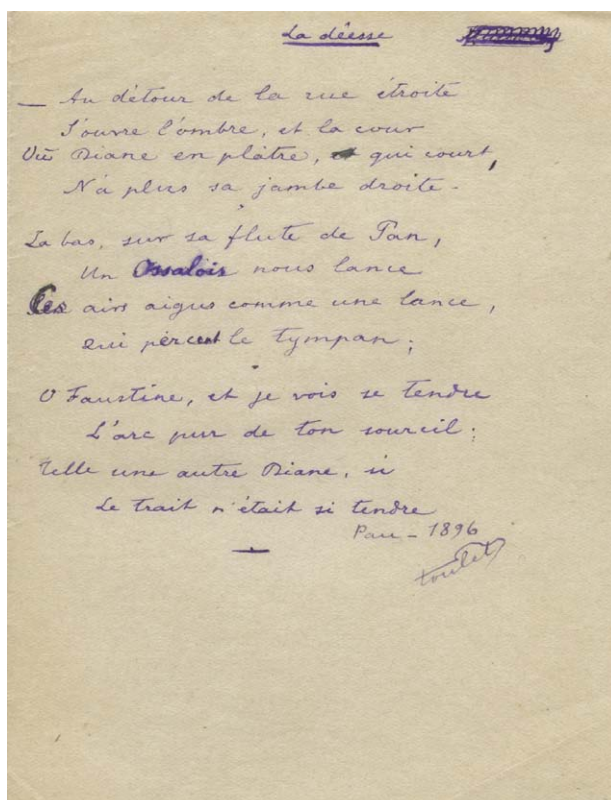 La déesse
— Au détour de la rue étroite
S'ouvre l'ombre, et la cour
Où Diane en plâtre, et qui court,
N'a plus sa jambe droite.
La bas, sur sa flute de Pan,
Un Ossalois nous lance
Ces airs aigus comme une lance,
Qui percent le tympan;
O Faustine, et je vois se tendre
L'arc pur de ton sourcil;
Telle une autre Diane, si
Le trait n'était si tendre
Pau – 1896
Toulet